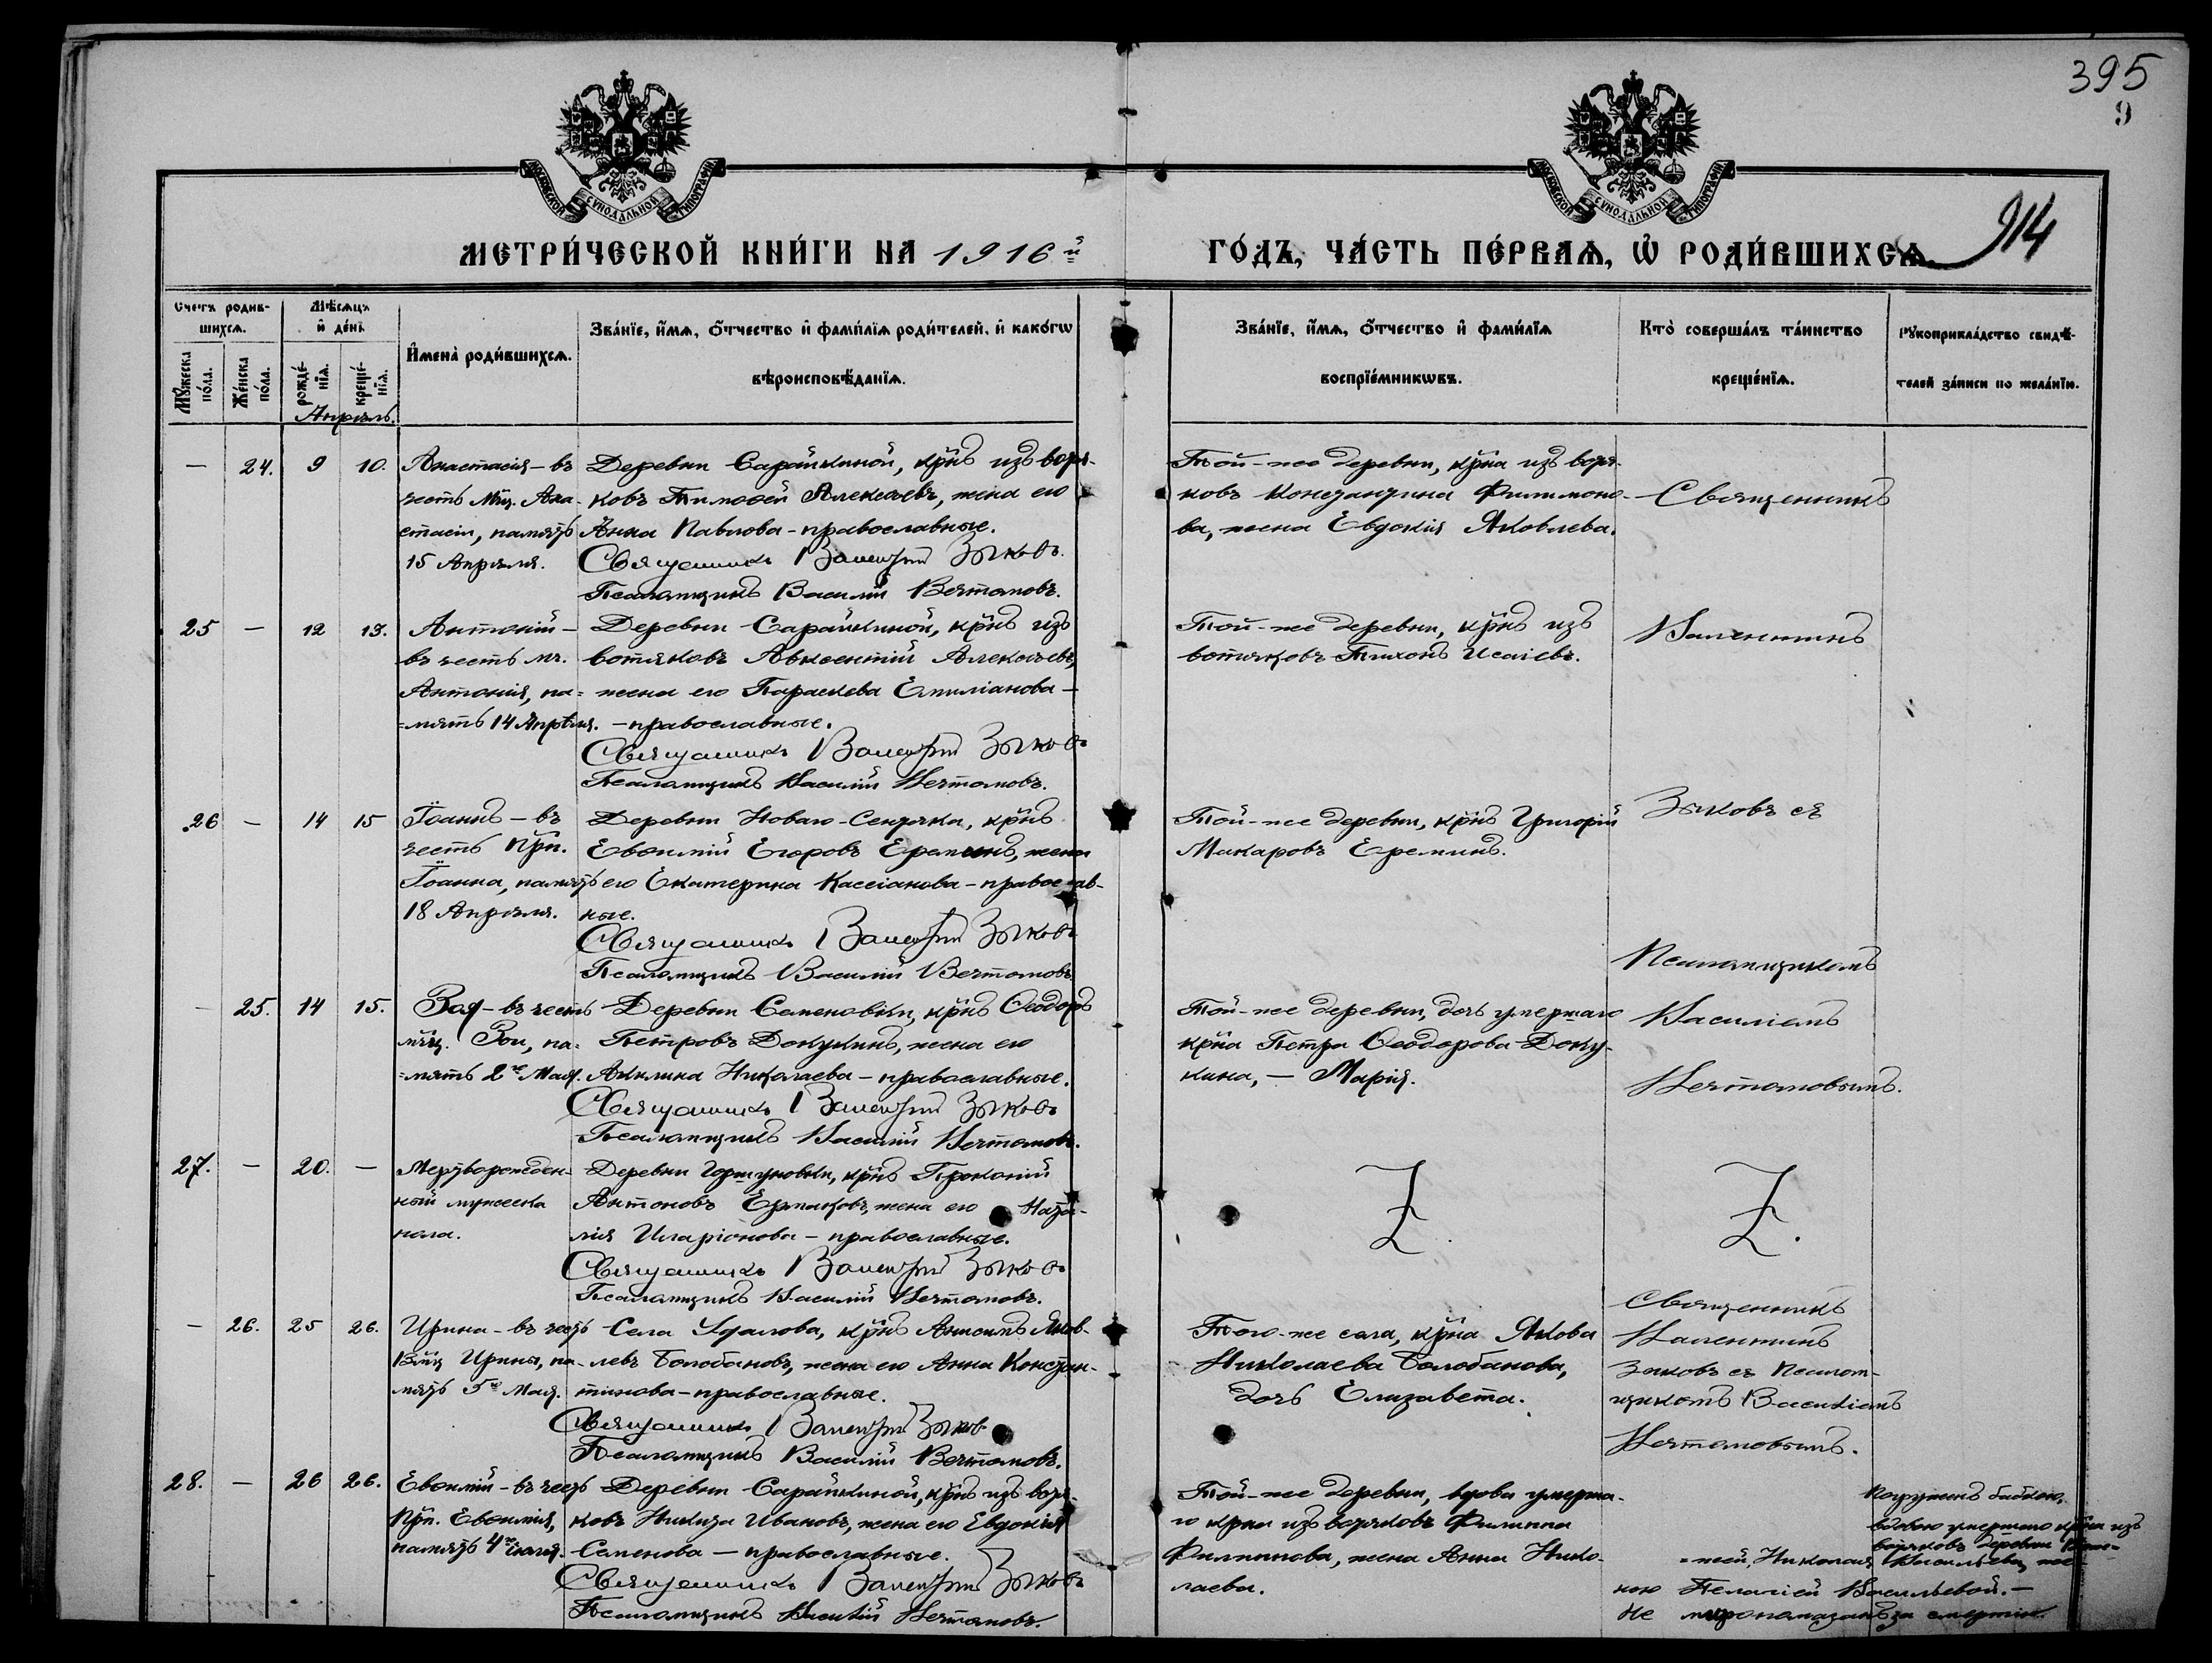 395
9
914
МОСКОВСКОЙ СѴНОДАЛЬНОЙ ТИПОГРАФІИ
МОСКОВСКОЙ СѴНОДАЛЬНОЙ ТИПОГРАФІИ
МЕТРИ́ЧЕСКОЙ КНИ́ГИ НА 1916й
ГО́ДЪ, ЧА́СТЬ ПЕ́РВАѦ, Ѡ҆ РОДИ́ВШИХСѦ.
Счетъ родив-
шихсѧ.
Мꙋжеска по́ла.
Же́нска по́ла.
Мѣ́сѧцъ
и҆ де́нь
рожде́-
нїѧ.
креще́-
нїѧ.
Апрѣль.
И҆мена̀ роди́вшихсѧ.
Зва́нїе, и҆́мѧ, ѻ҆́тчество и҆ фами́лїѧ роди́телей, и҆ како́гѡ
вѣроисповѣ́данїѧ.
Зва́нїе, и҆́мѧ, ѻ҆́тчество и҆ фами́лїѧ
воспрїе́мникѡвъ.
Кто̀ соверша́лъ та́инство
креще́нїѧ.
Рꙋкоприкла́дство свидѣ́-
телей за́писи по жела́нїю.
— 24. 9 10.
Анастасія – въ
честь Мцц. Ана-
стасіи, память
15 Апрѣля.
Деревни Сарайкиной, крнъ изъ вотя-
ковъ Тимоѳей Алексѣевъ, жена его
Анна Павлова – православные.
Священникъ Валентин Зыковъ.
Псаломщикъ Василій Вечтомовъ.
Той-же деревни, крна изъ вотя-
ковъ Константина Филимоно-
ва, жена Евдокія Яковлева.
Священникъ
25 — 12 13.
Антоній –
въ честь мч.
Антонія, па-
=мять 14 Апрѣля.
Деревни Сарайкиной, крнъ изъ
вотяковъ Авксентій Алексѣевъ,
жена его Параскева Емиліанова –
– православные.
Священникъ Валентин Зыковъ
Псаломщикъ Василій Вечтомовъ.
Той-же деревни, крнъ изъ
вотяковъ Тихонъ Исаіевъ.
Валентинъ
26 — 14 15
Іоаннъ – въ
честь Прп.
Іоанна, память
18 Апрѣля.
Деревни Новаго-Сентяка, крнъ
Евѳимій Егоровъ Ереминъ, жена
его Екатерина Кассіанова – православ-
ные.
Священникъ Валентин Зыковъ
Псаломщикъ Василій Вечтомовъ
Той-же деревни, крнъ Григорій
Макаровъ Ереминъ.
Зыковъ съ
Псаломщикомъ
— 25. 14 15.
Зоя – въ честь
мцц. Зои, па-
=мять 2го Мая.
Деревни Семеновки, крнъ Ѳеодоръ
Петровъ Докукинъ, жена его
Акилина Николаева – православные.
Священникъ Валентин Зыковъ
Псаломщикъ Василій Вечтомовъ.
Той-же деревни, дочь умершаго
крна Петра Ѳеодорова Доку-
кина, – Марія.
Василіемъ
Вечтомовымъ.
27. — 20. —
Мертворожден-
ный мужеска
пола.
Деревни Гортуновки, крнъ Прокопій
Антоновъ Ермаковъ, жена его Ната-
лія Иларіонова – православные.
Священникъ Валентин Зыковъ
Псаломщикъ Василій Вечтомовъ.
Z.
Z.
— 26. 25 26.
Ирина – въ честь
Вмц Ирины, па-
мять 5го Мая.
Села Удалова, крнъ Анисимъ Яков-
левъ Болобановъ, жена его Анна Констан-
тинова – православные.
Священникъ Валентин Зыков
Псаломщикъ Василій Вечтомовъ.
Того-же села, крна Якова
Николаева Болобанова,
дочь Елизавета.
Священникъ
Валентинъ
Зыковъ съ Псалом-
щикомъ Василіемъ
Вечтомовымъ.
28. — 26 26.
Евѳимій – въ честь
Прп. Евѳимія,
память 4го іюля.
Деревни Сарайкиной, крнъ изъ вотя-
ковъ Никита Ивановъ, жена его Евдокія
Семенова – православные.
Священникъ Валентин Зыковъ
Псаломщикъ Василій Вечтомовъ.
Той-же деревни, вдова умерша-
го крна изъ вотяковъ Филиппа
Филиппова, жена Анна Нико-
лаева.
Погруженъ бабкою,
вдовою умершаго крна изъ
вотяковъ деревни
Николая Васильева, же-
ною Пелагіей Васильевой. –
Не мѵропомазанъ за смертію.